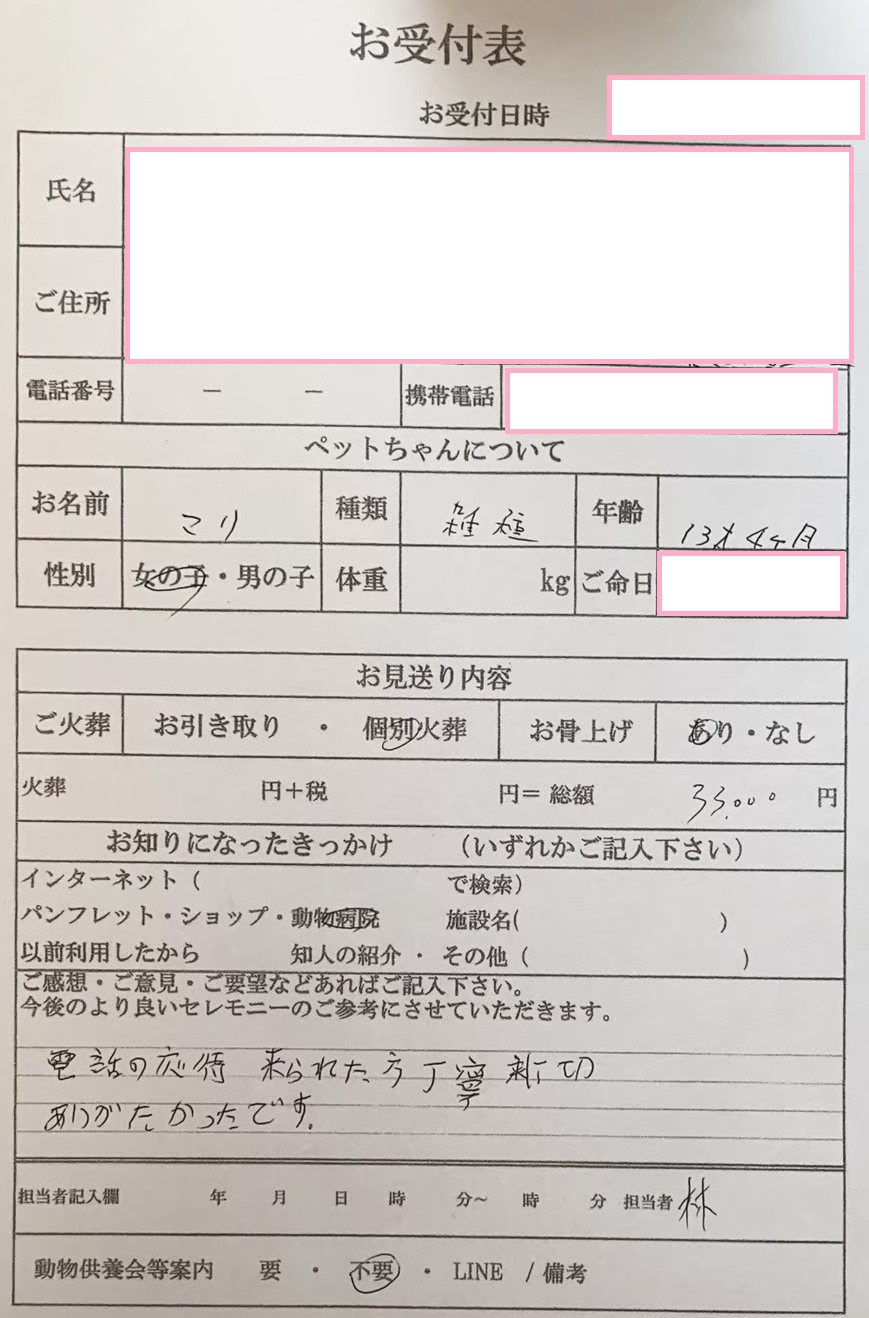 お受付表
お受付日時
氏名
ご住所
電話番号 － － 携帯電話
ペットちゃんについて
お名前 マリ 種類 雑種 年齢 13才4ヶ月
性別 女の子・男の子 体重 kg ご命日
お見送り内容
ご火葬 お引き取り ・ 個別火葬 お骨上げ あり・なし
火葬 円＋税 円＝ 総額 33.000 円
お知りになったきっかけ （いずれかご記入下さい）
インターネット（ で検索）
パンフレット・ショップ・動物病院 施設名( )
以前利用したから 知人の紹介 ・ その他（ ）
ご感想・ご意見・ご要望などあればご記入下さい。
今後のより良いセレモニーのご参考にさせていただきます。
電話の応待 来られた方 丁寧 新切
ありがたかったです。
担当者記入欄 年 月 日 時 分～ 時 分 担当者 林
動物供養会等案内 要 ・ 不要 ・ LINE / 備考